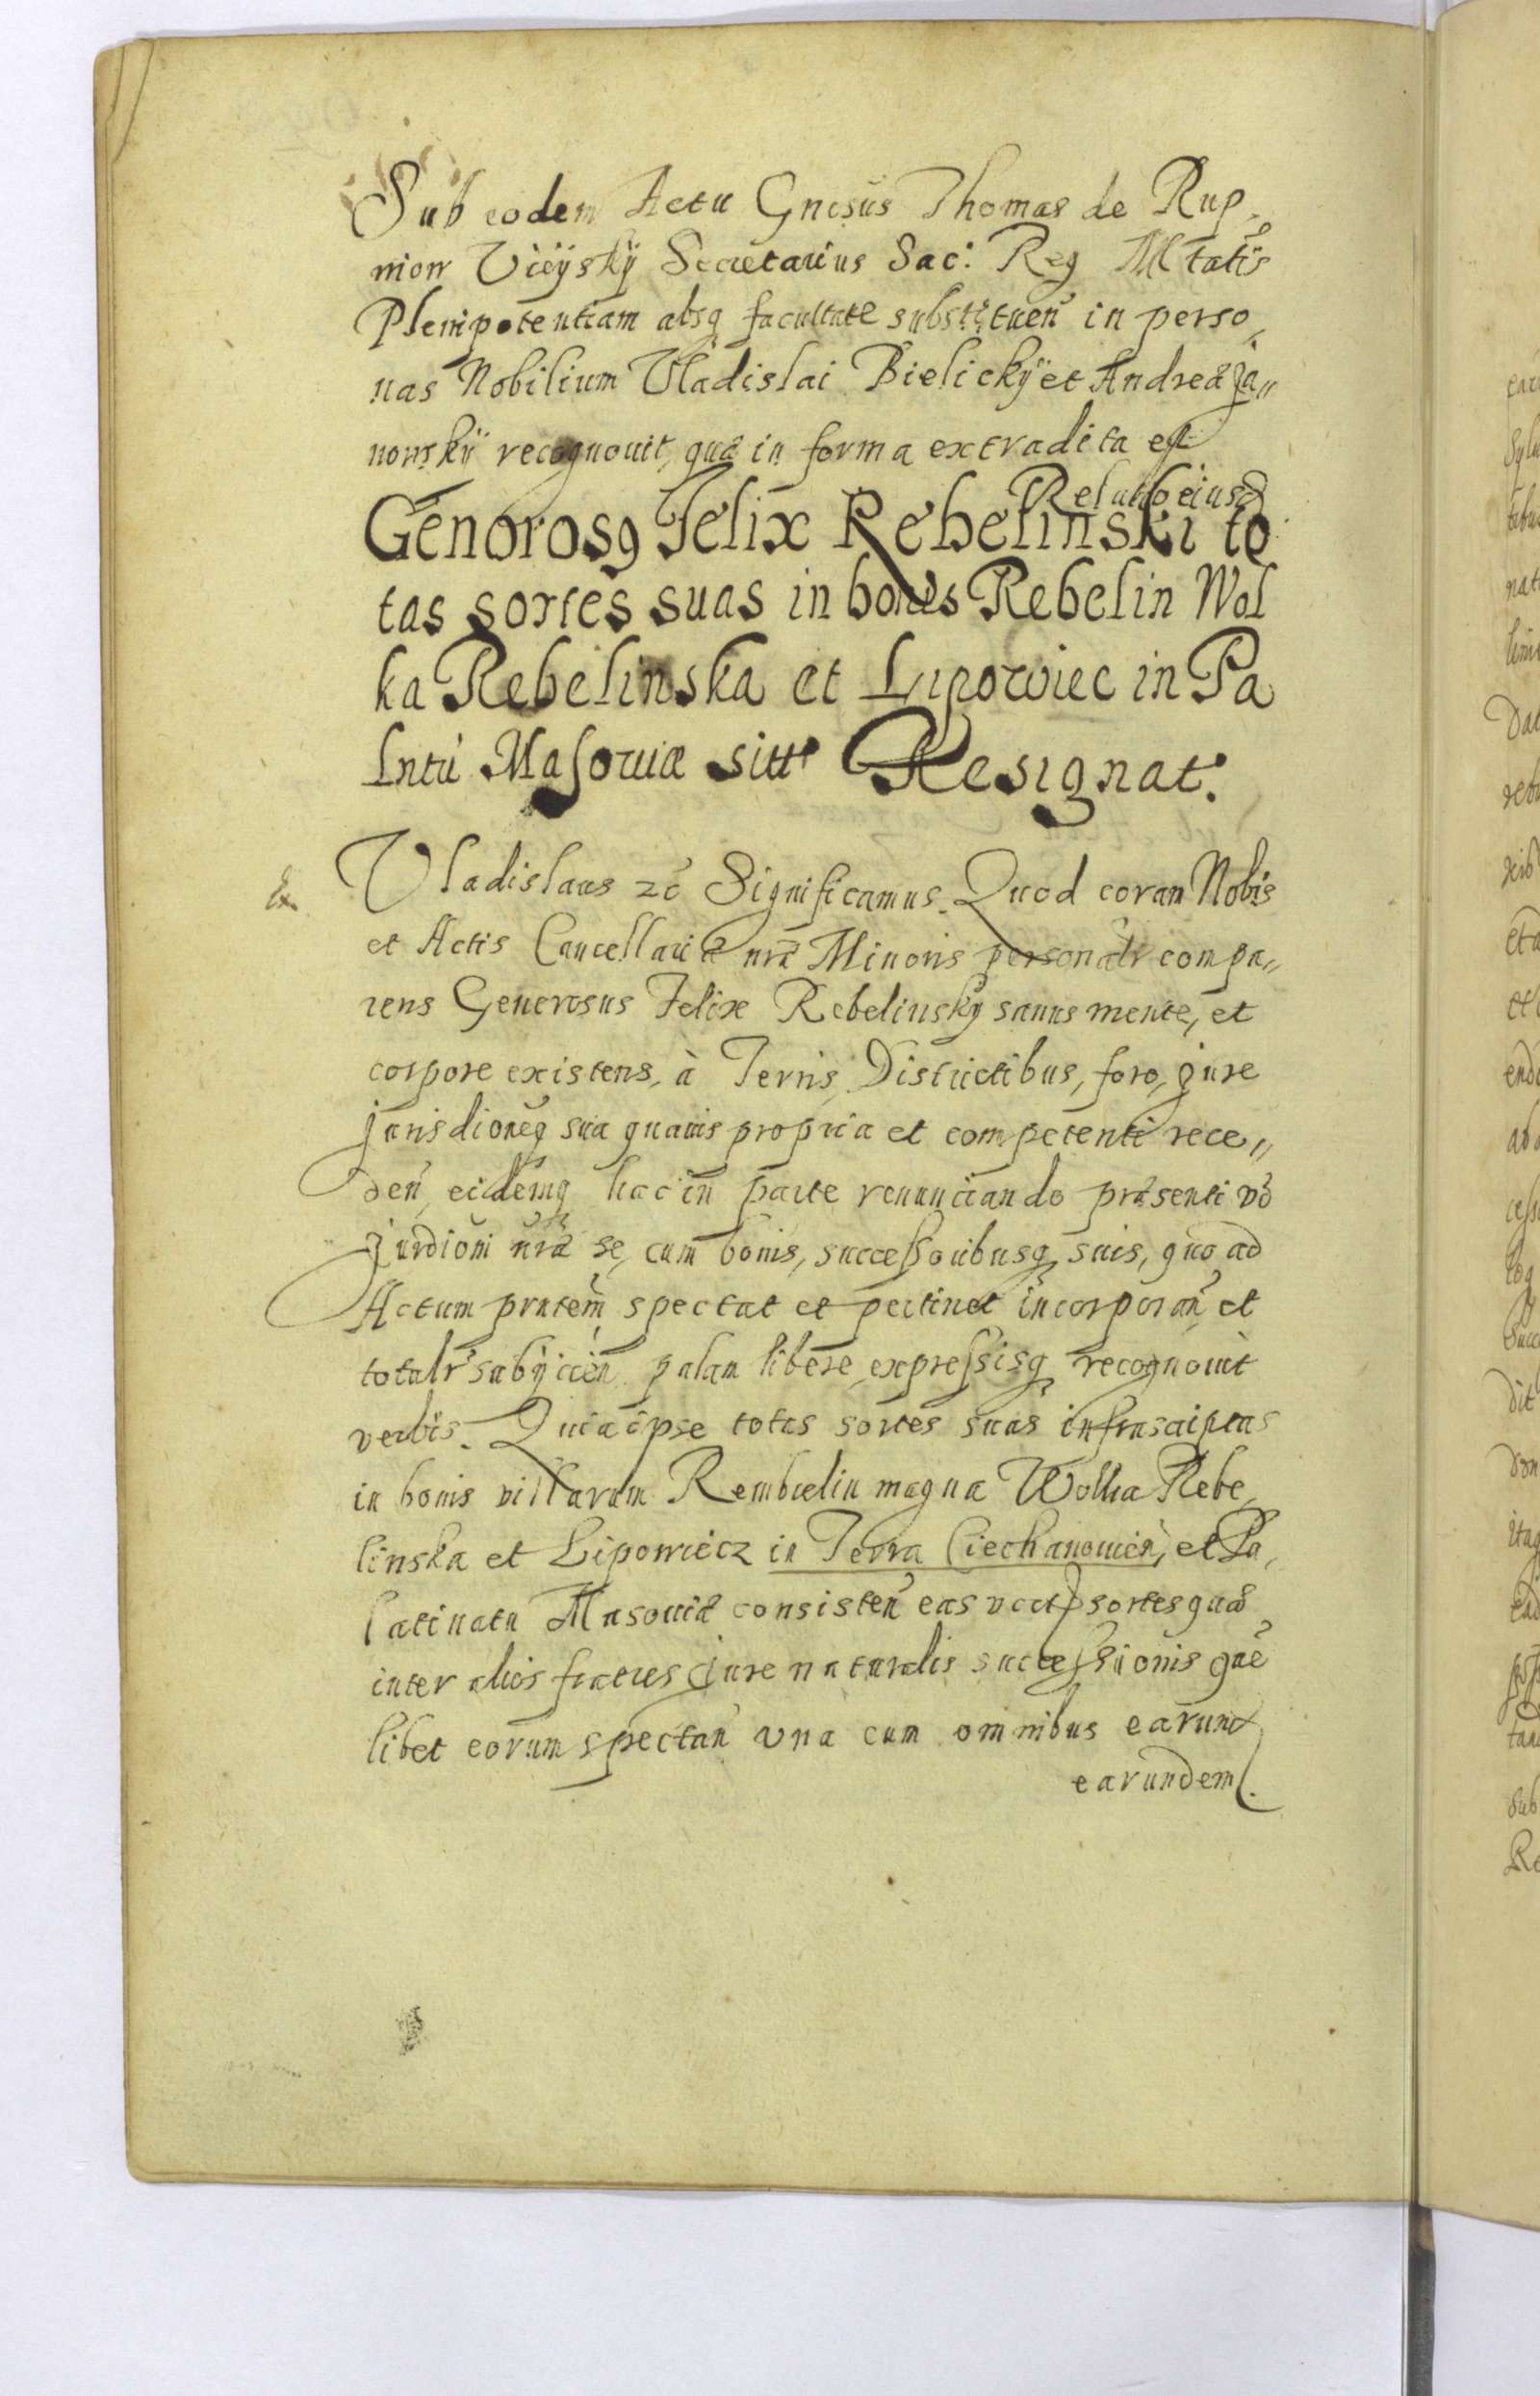 Sub eodem Actu Gnosus Thomas de Rup,
niow Uieyskÿ Secretarius Sac: Reg Mtatis
Plenipotentiam absq facultate substituen in perso,
nas Nobilium Vladislai Bielickÿ et Andreæ Ja„
nowskÿ recognouit, quæ in forma extradita est
Relatio eiusd
Generosg Felix Rebelinski to
tas sortes suas in bonis Rebelin Wol
ka Rebelinska et Lipowiec in Pa
lntu Masowiæ sitt Resignat.
Ex Vladislaus zc Significamus. Quod coram Nobis
et Actis Cancellariæ nræ Minoris personalr compa„
rens Generosus Felix Rebelinsky sanus mente, et
corpore existens, à Terris, Districtibus, foro, jure
jurisdioneq sua quauis propria et competenti rece„
den, eidemq hac in parte renunciando præsenti vō
Jurdioni nræ se, cum bonis, successoribusq suis, quo ad
Actum prntem spectat et pertinet incorporan, et
totalr subÿcien palam libere, expressisq recognouit
verbis. Quia ipse totas sortes suas infrascriptas
in bonis villarum Rembielin magna Wolka Rebe,
linska et Lipowiecz in Terra Ciechanouien, et Pa,
latinatu Masouiæ consisten eas sortes quas
inter alios fratres jure naturalis successionis que
libet eorum spectan una cum omnibus earund
earundem